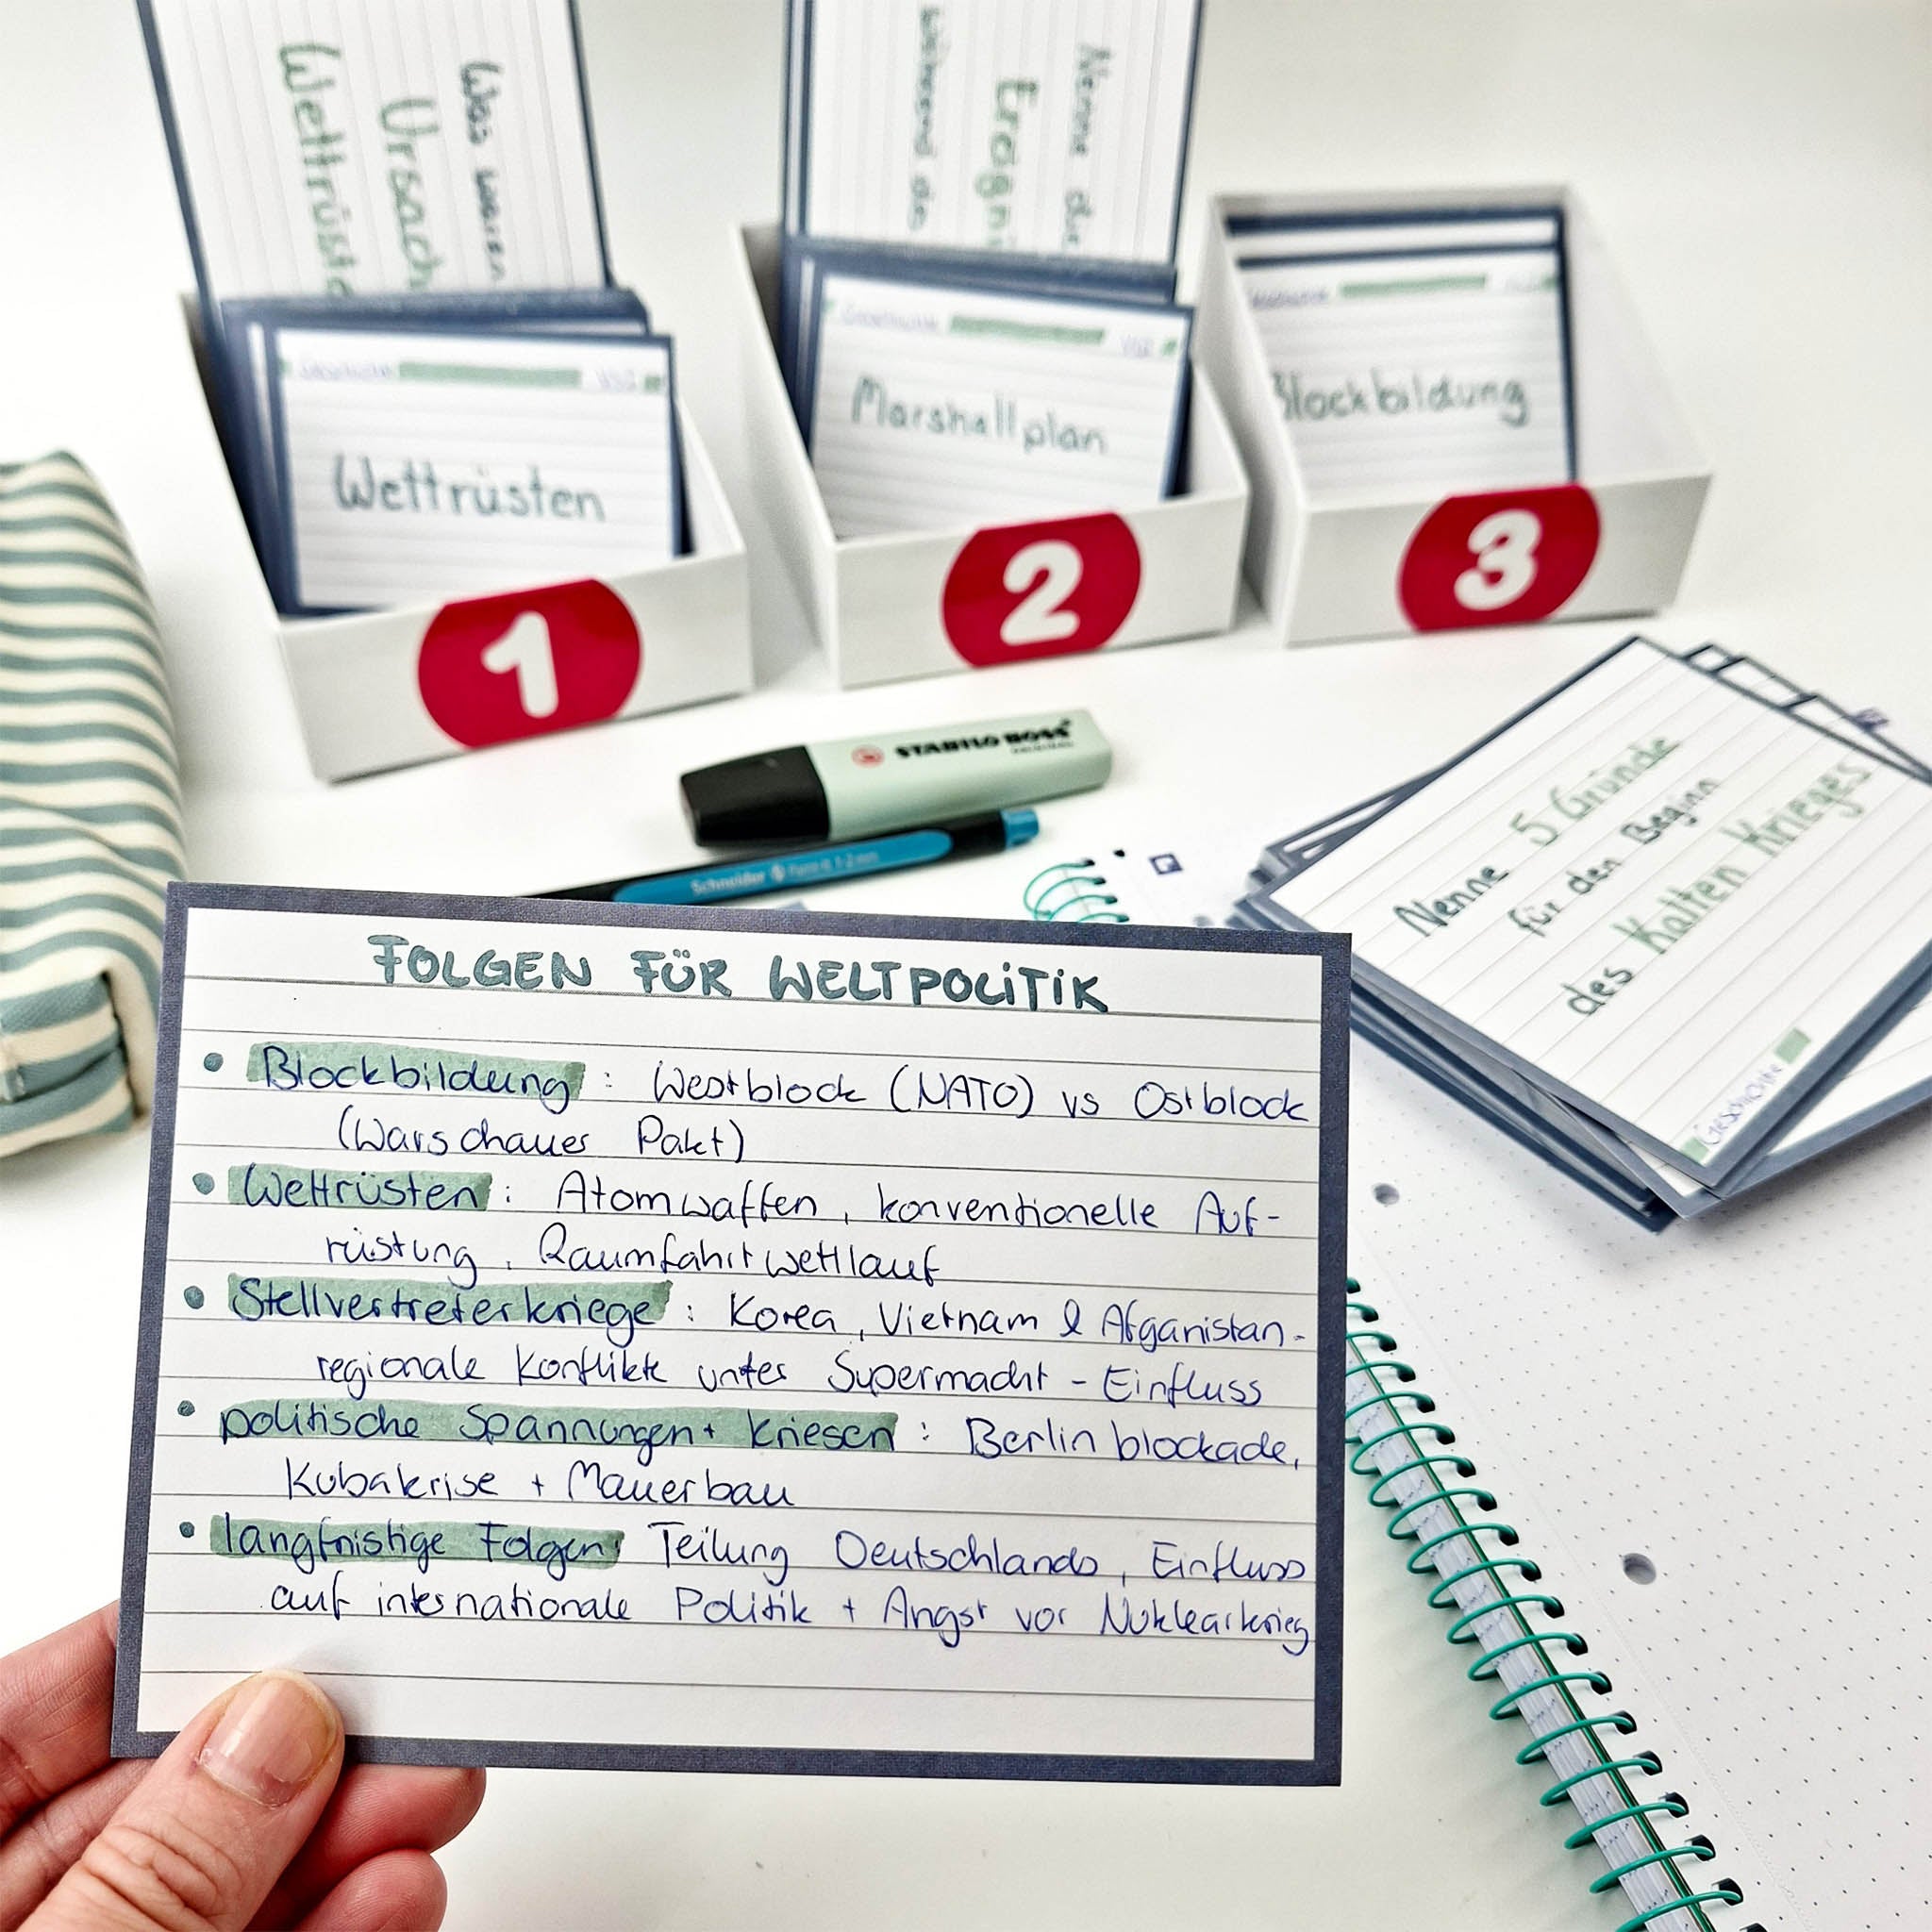 Was waren
Ursach
Wettrüste
Nenne die
Ereigni
während de
Wettrüsten
Marshallplan
Blockbildung
1
2
3
STABILO BOSS
ORIGINAL
Schneider
Nenne 5 Gründe
für den Beginn
des Kalten Krieges
Geschichte
FOLGEN FÜR WELTPOLITIK
• Blockbildung : Westblock (NATO) vs Ostblock
(Warschauer Pakt)
• Wettrüsten : Atomwaffen, konventionelle Auf-
rüstung, Raumfahrtwettlauf
• Stellvertreterkriege : Korea, Vietnam & Afganistan -
regionale Konflikte unter Supermacht - Einfluss
• politische Spannungen + Kriesen : Berlinblockade,
Kubakrise + Mauerbau
• langfristige Folgen: Teilung Deutschlands, Einfluss
auf internationale Politik + Angst vor Nuklearkrieg